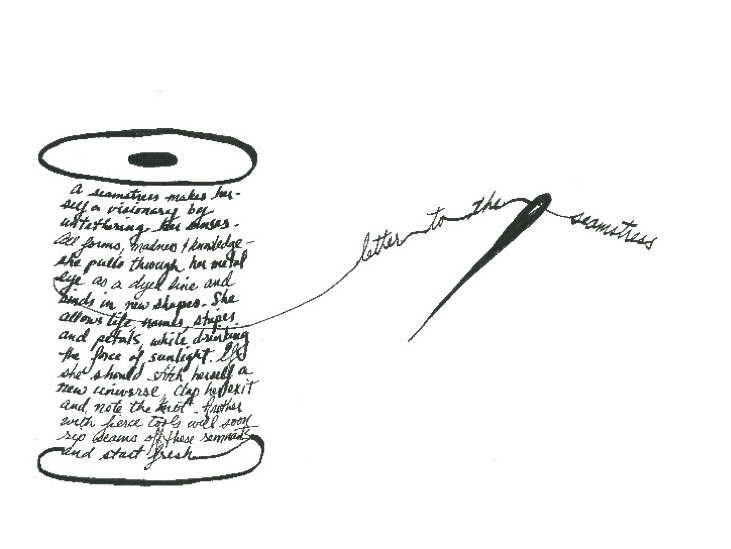 A seamstress makes her-
self a visionary by
untethering her senses.
All forms, madness & knowledge—
she pulls through her metal
eye as a dyed line and
binds in new shapes. She
allows life names, stripes
and petals, while drinking
the force of sunlight. If
she should stitch herself a
new universe, clap her exit
and note the knot. Another
with fierce tools will soon
rip seams off these remnants
and start fresh
letter to the seamstress